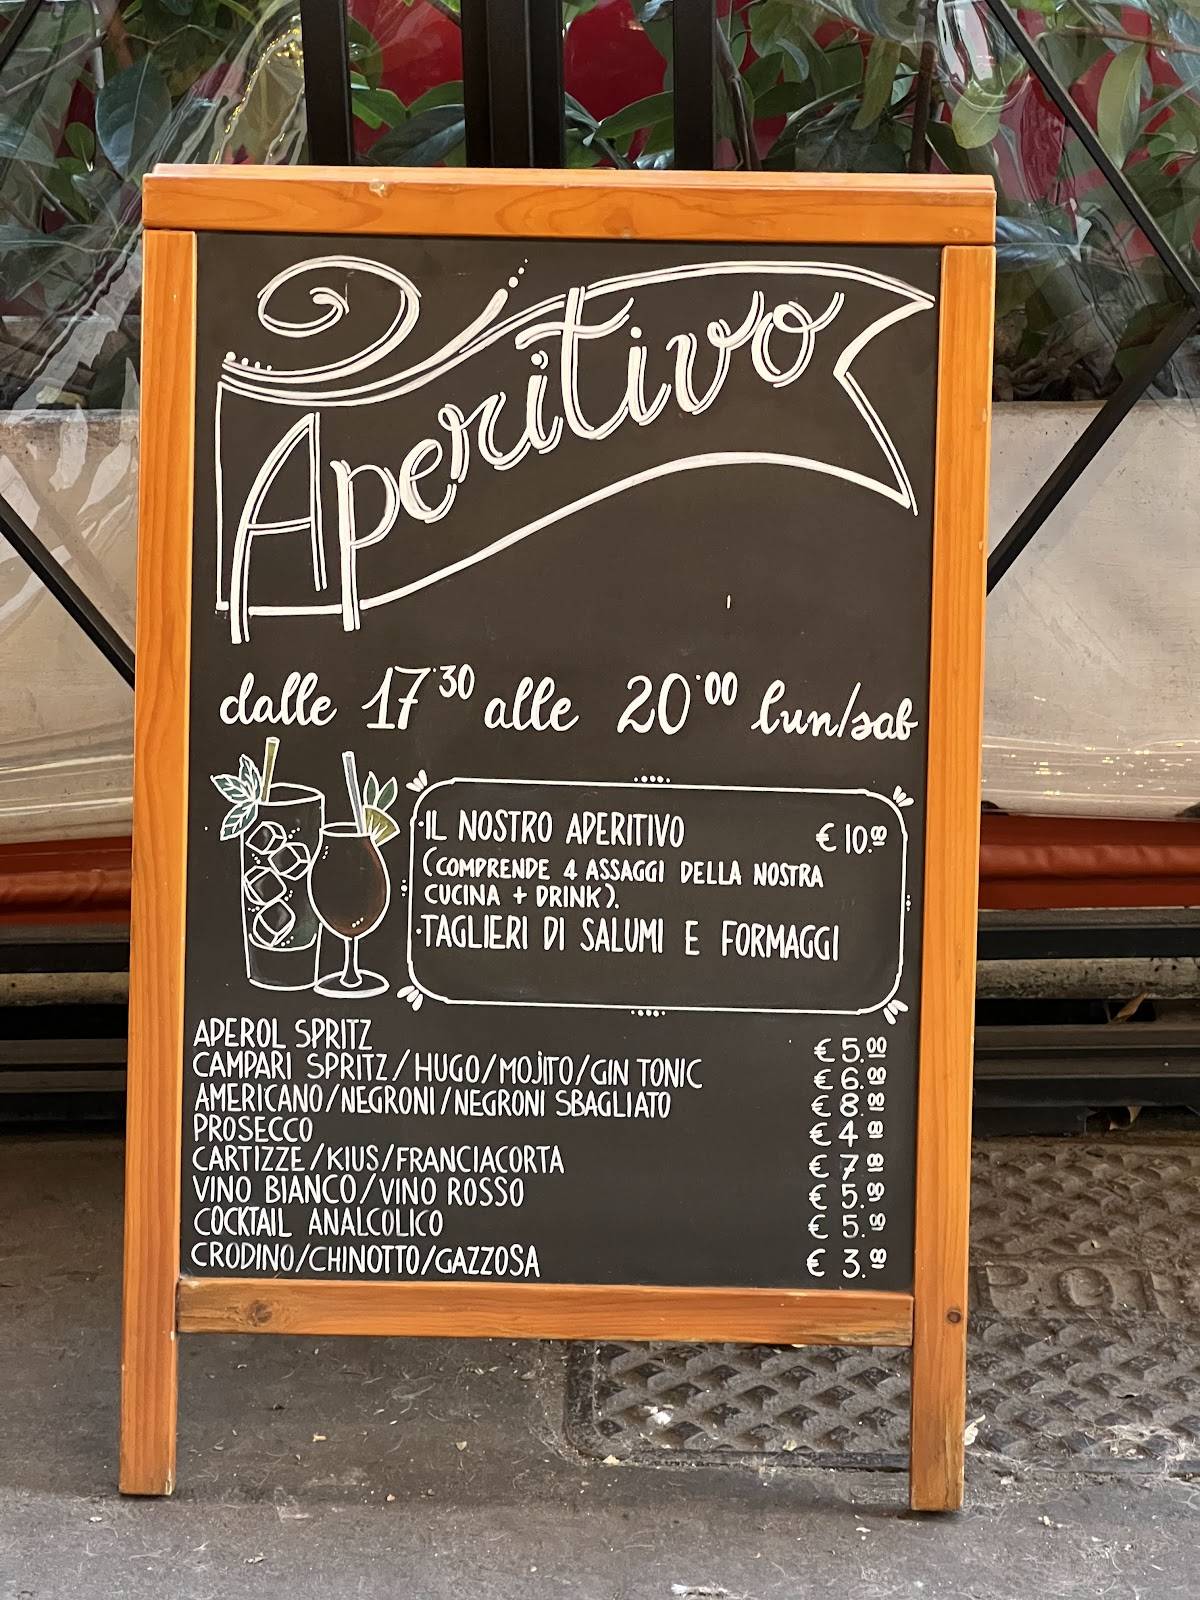 Aperitivo
dalle 17:30 alle 20:00 lun/sab
·IL NOSTRO APERITIVO € 10.00
(COMPRENDE 4 ASSAGGI DELLA NOSTRA
CUCINA + DRINK).
·TAGLIERI DI SALUMI E FORMAGGI
APEROL SPRITZ € 5.00
CAMPARI SPRITZ/HUGO/MOJITO/GIN TONIC € 6.00
AMERICANO/NEGRONI/NEGRONI SBAGLIATO € 8.00
PROSECCO € 4 00
CARTIZZE/KIUS/FRANCIACORTA € 7 00
VINO BIANCO/VINO ROSSO € 5.00
COCKTAIL ANALCOLICO € 5.00
CRODINO/CHINOTTO/GAZZOSA € 3.00